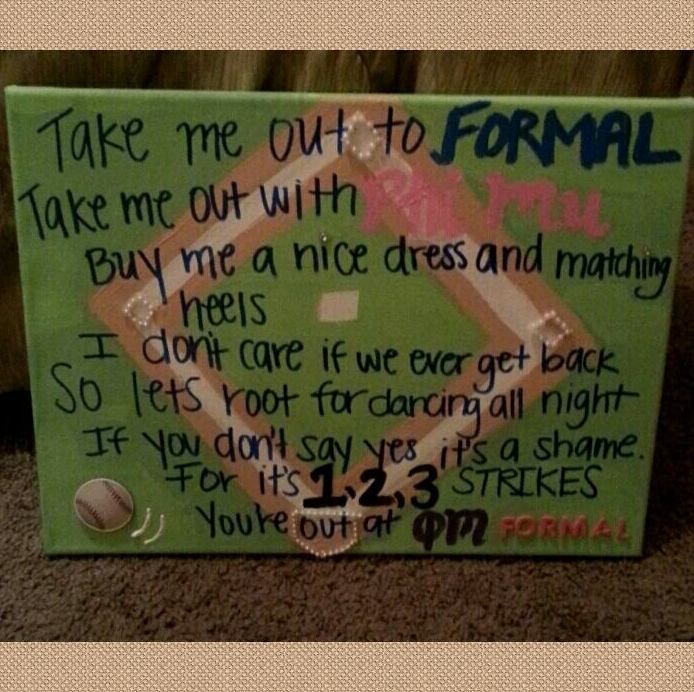 Take me out to FORMAL
Take me out with Phi Mu
Buy me a nice dress and matching
heels
I don't care if we ever get back
So lets root for dancing all night
If you don't say yes it's a shame.
For it's 1,2,3 STRIKES
You're out at ΦM FORMAL